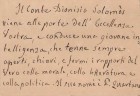 Il Conte Dionisio Salomòs
viene alle porte Dell' Eccellenza
Vostra, e conduce una giovane in
telligenza, che tenne sempre
aperti, chiari, e fermi i rapporti del
Vero colla morale, colla letteratura e
colla politica. Il suo nome è D.